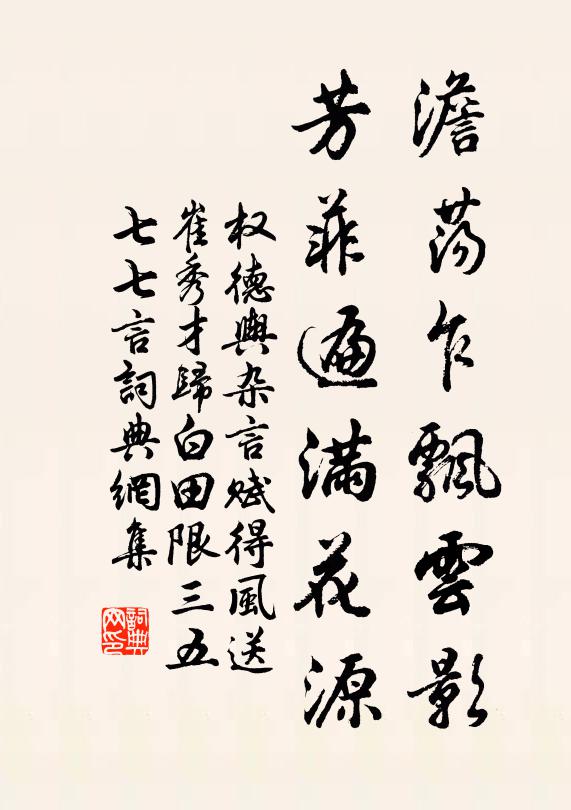 澹蕩乍飄雲影
芳菲遍滿花源
权德輿杂言賦得風送
崔秀才歸白田限三五
七七言詞典網集
詞典网印